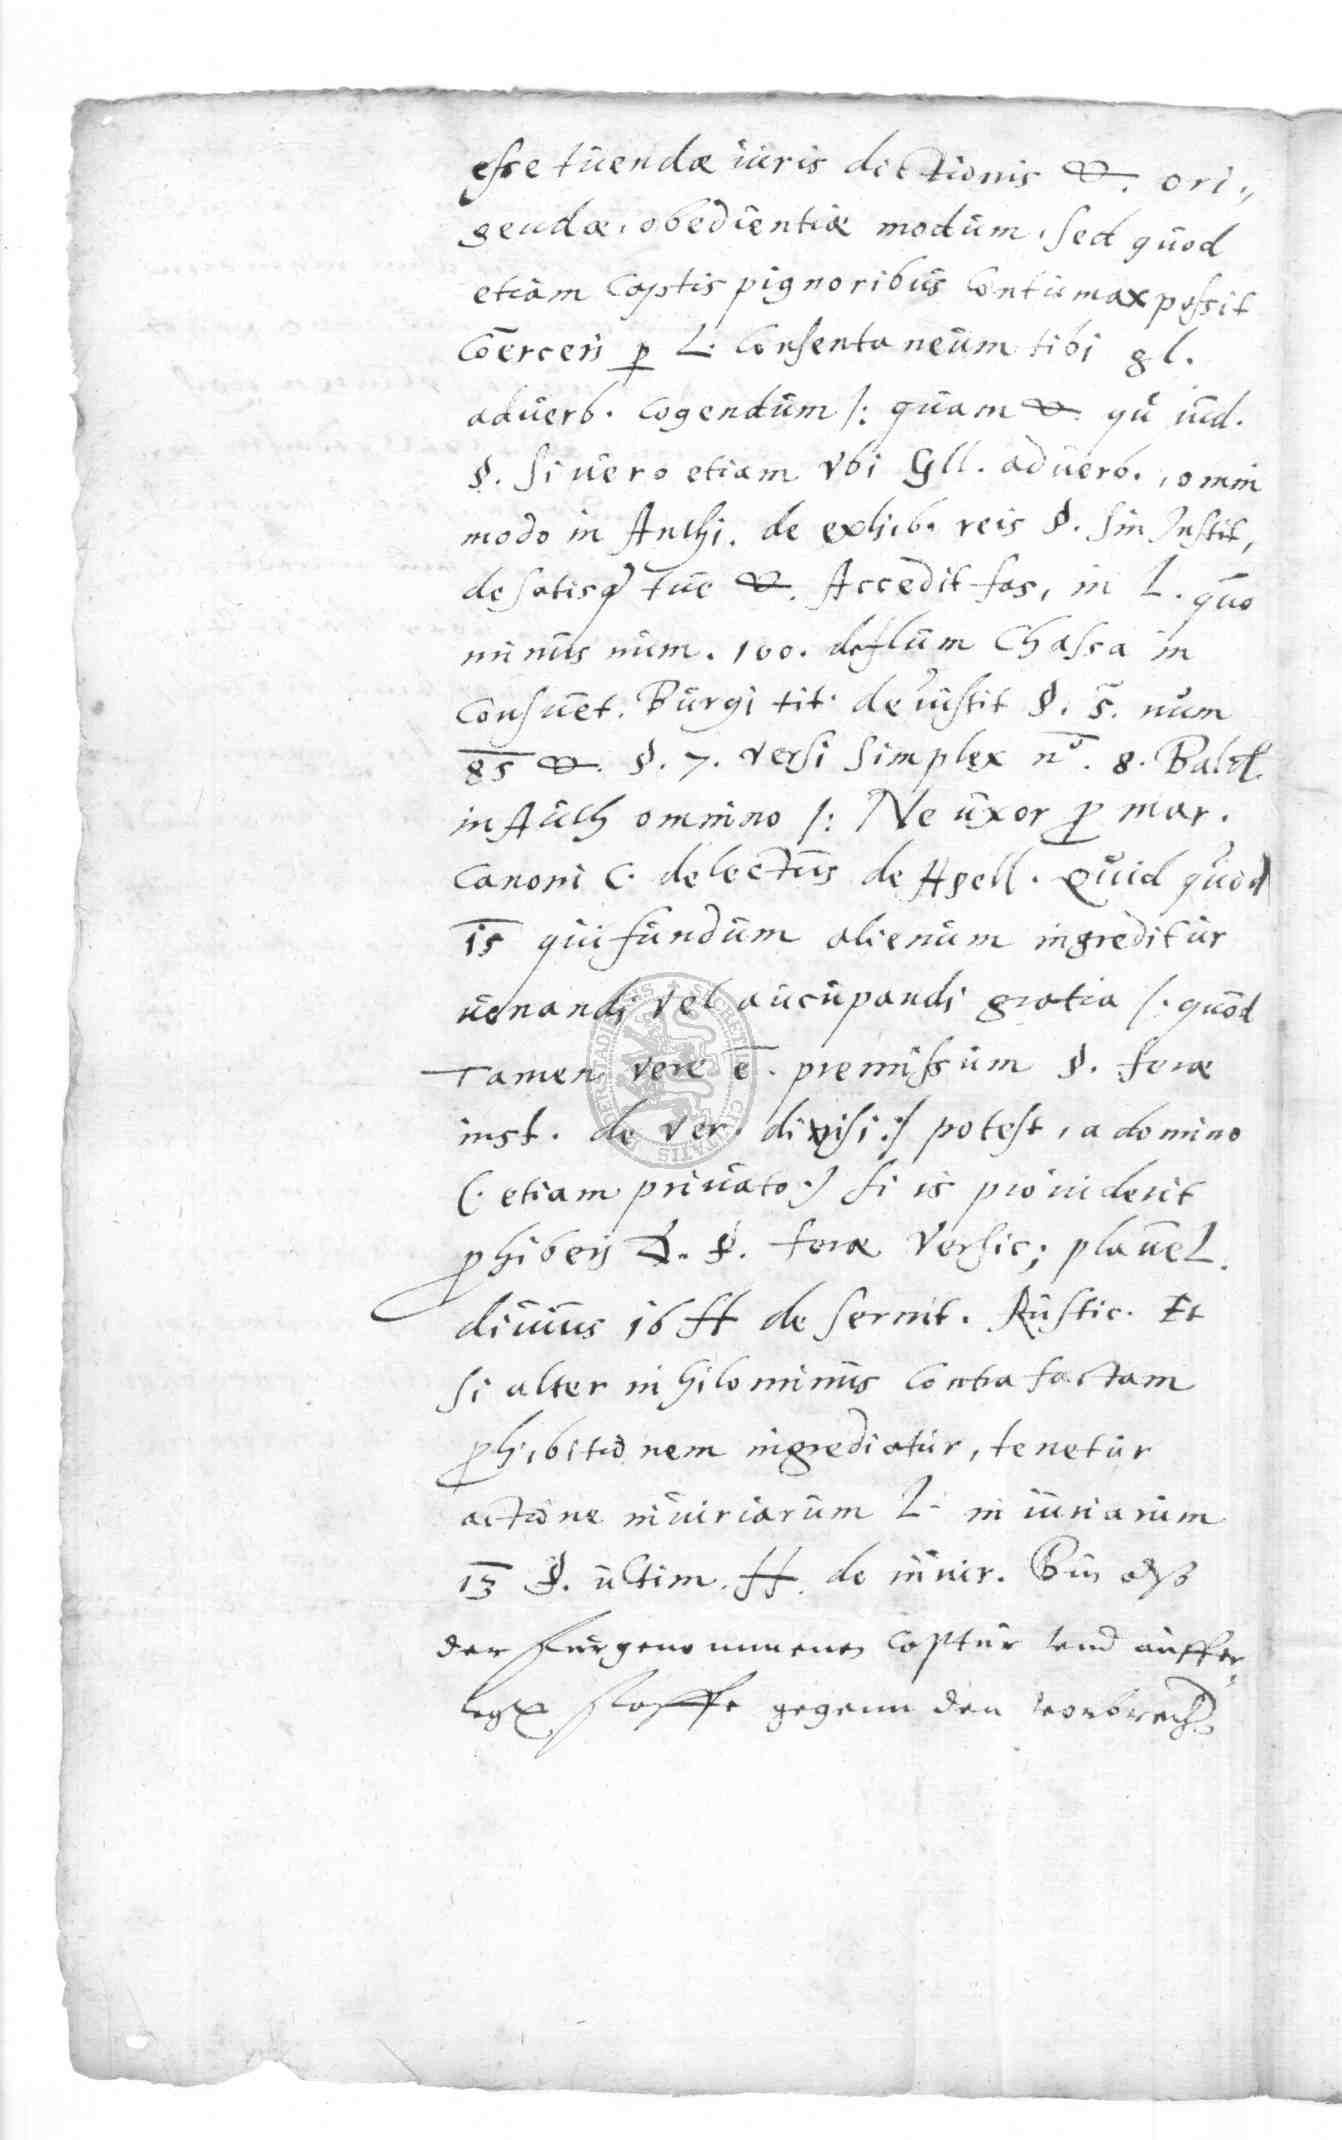 esse tuendæ iuris dictionis &. ori„
gendæ, obedientiæ modum, sed quod
etiam captis pignoribus contumax possit
coerceri p L. Consentaneum tibi gl.
adverb. cogendum /: quam & qu iud.
§. Si vero etiam vbi Gll. adverb. omni
modo in Anthi. de exhib. reis §. sin Instit,
de satisq tue &. Accedit fas, in L. quo
minus num. 100. de flum Chassa in
Consuet. Burgi tit. de iustit §. 5. num
85 &. §. 7. versi simplex no. 8. Bald.
in Auth omnino /: Ne uxor p mar.
Canoni C. delectus de Apell. Quid quod
is qui fundum alienum ingreditur
venandi vel aucupandi gratia /: quod
Tamen vere e. premissum §. feræ
inst. de ver. divisi :/ potest, a domino
(. etiam privato .) si is providerit
phiberi d. §. feræ versic; plane L.
divius 16 ff de servit. Rustic. Et
si alter nihilominus contra factam
phibitionem ingrediatur, tenetur
actione iniuriarum L. iniuriarum
13 §. ultim. ff. de iniur.
der fürgenommenen Captur vnd auffer„
straffe gegenn den verbrech
SECRETUM CIVITATIS